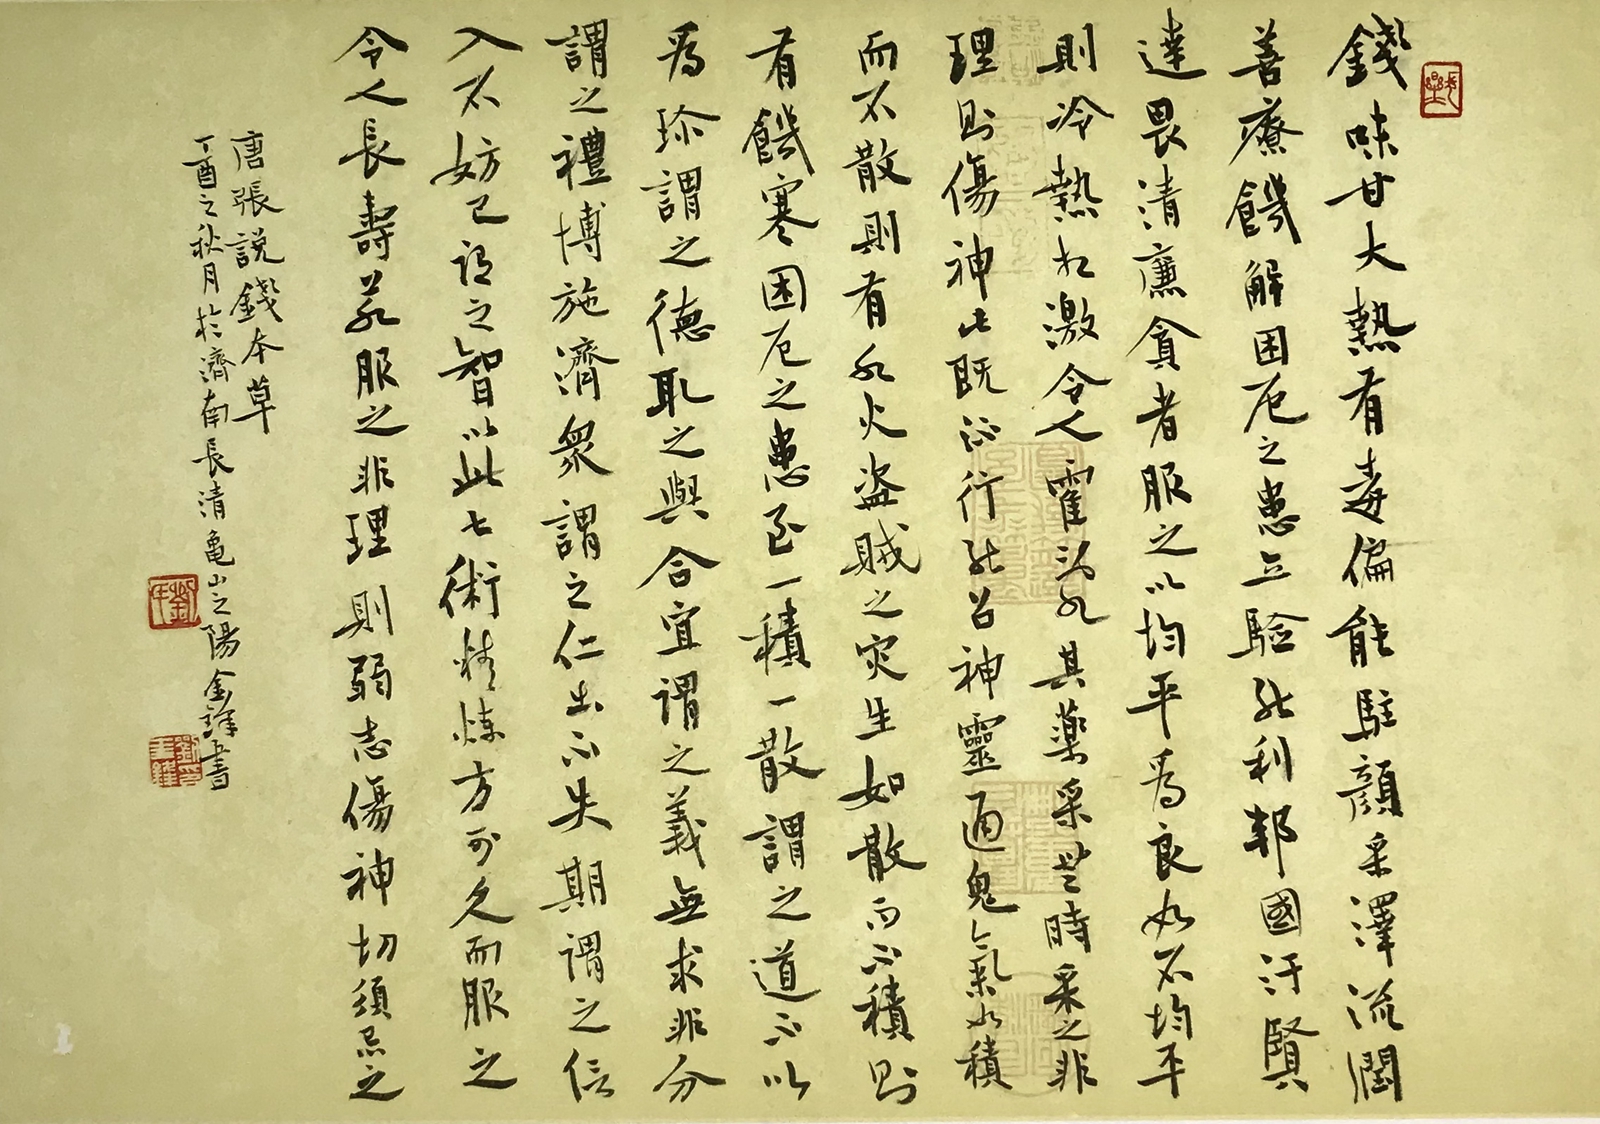 錢味甘大熱有毒偏能駐顔采澤流潤
善療饑解困厄之患立驗能利邦國汙賢
達畏清廉貪者服之以均平爲良如不均平
則冷熱相激令人霍亂其藥采無時采之非
理則傷神此既流行能召神靈通鬼氣如積
而不散則有水火盜賊之灾生如散而不積則
有饑寒困厄之患至一積一散謂之道不以
爲珍謂之德取之與合宜謂之義無求非分
謂之禮博施濟衆謂之仁出不失期謂之信
入不妨己謂之智以此七術精煉方可久而服之
令人長壽若服之非理則弱志傷神切須忌之
唐張説錢本草
丁酉之秋月於濟南長清龜山之陽金鋒書